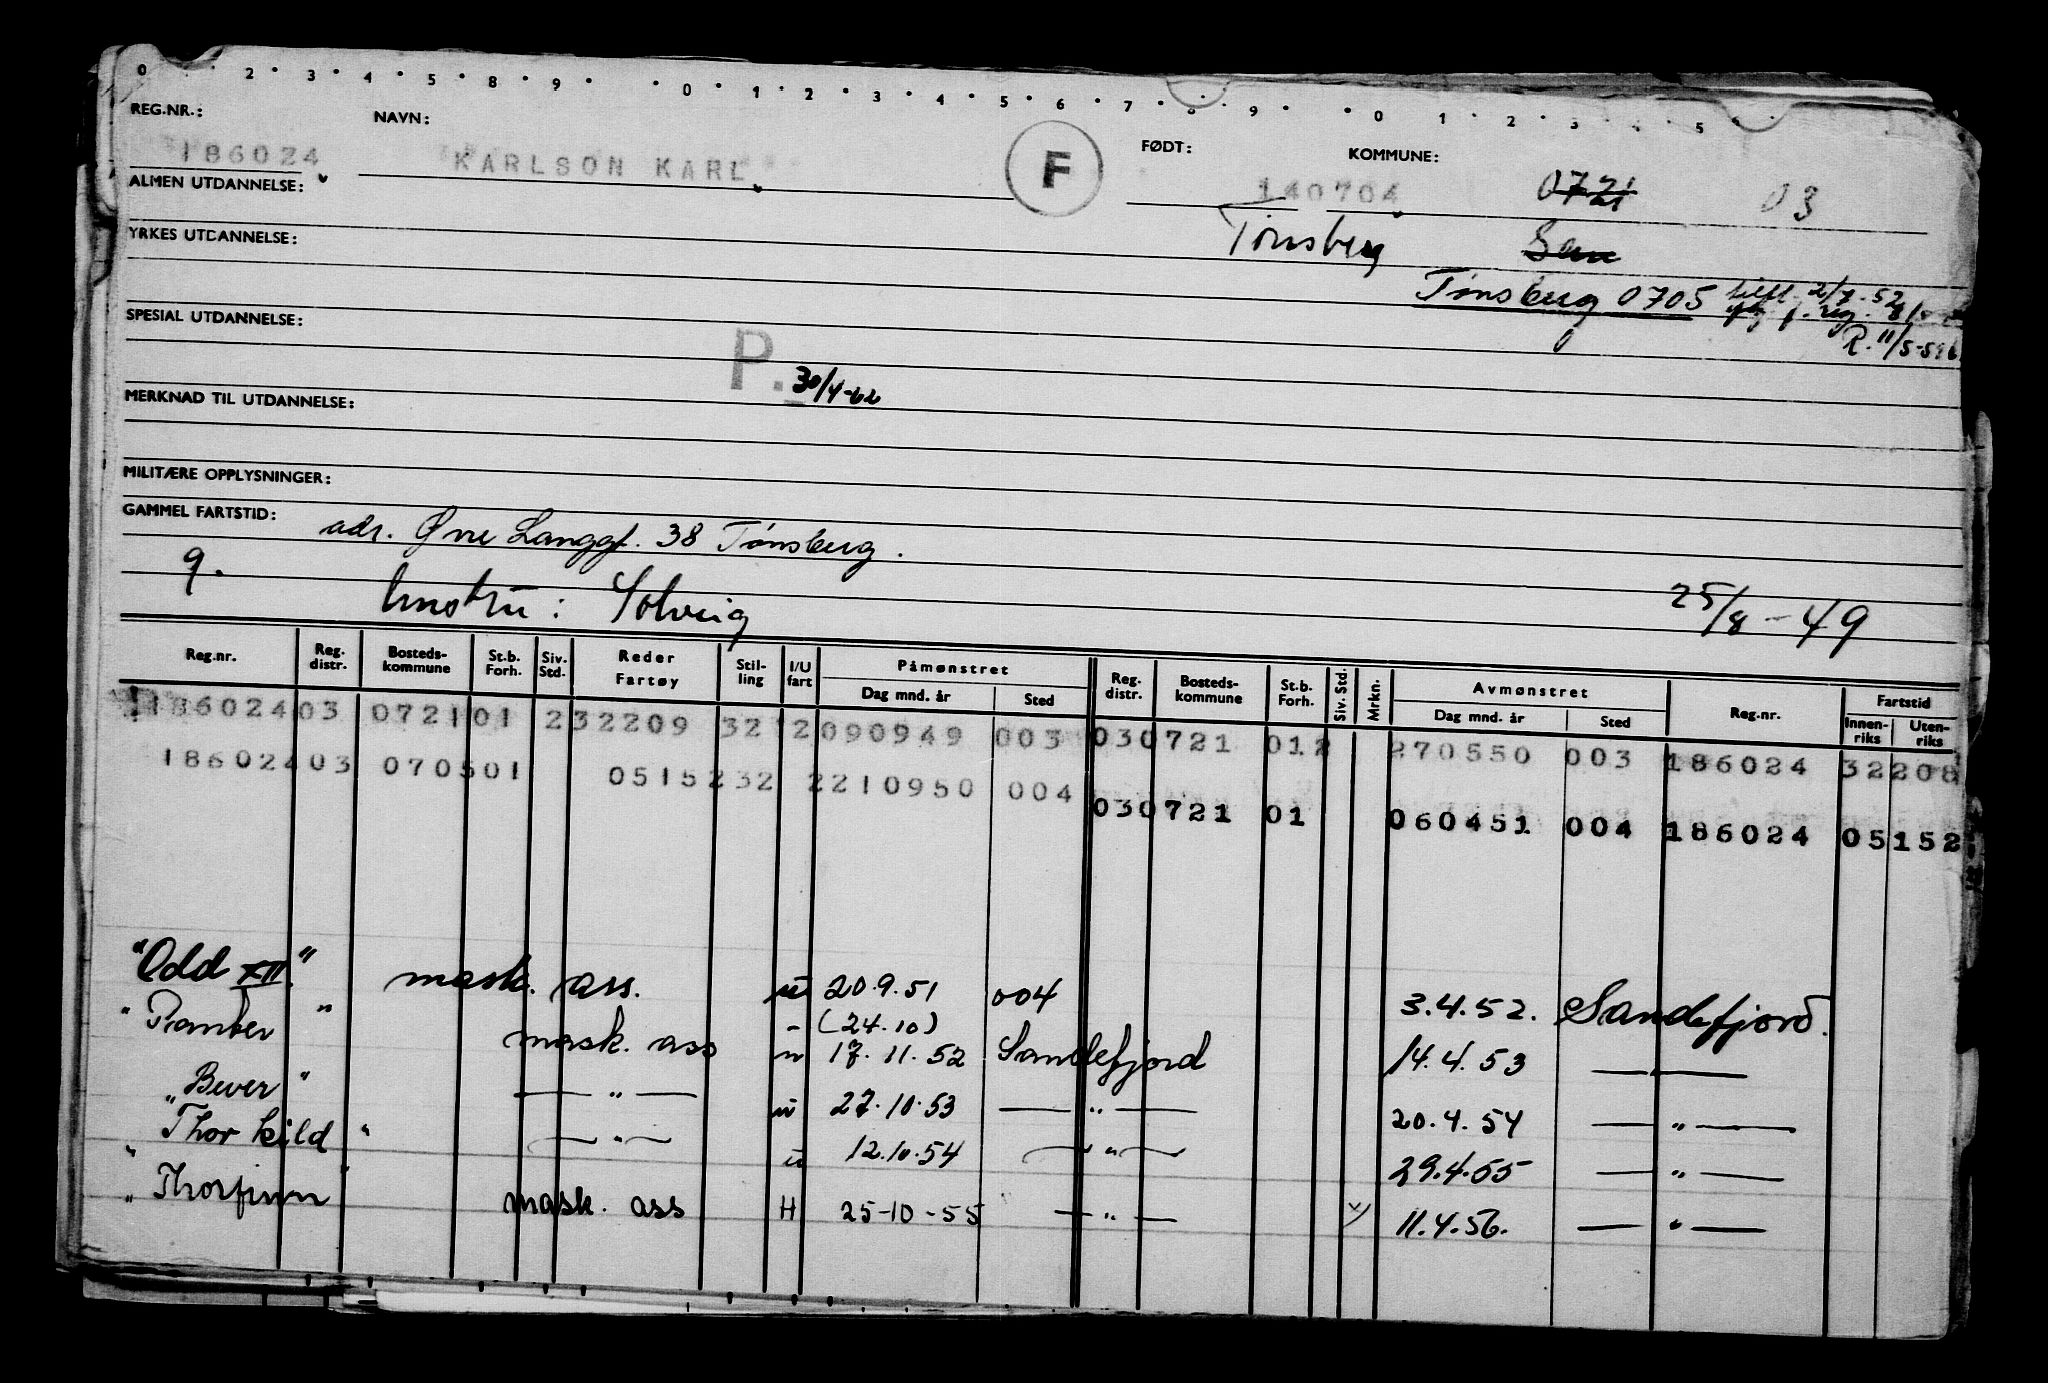 0 · 2 · 3 · 4 · 5 · 8 · 9 · · 0 · 1 · 2 · 3 · 4 · 5 · 6 · 7 · 8 · 9 · · 0 1 2 3 4 5
REG.NR.: NAVN: FØDT: KOMMUNE:
186024 KARLSON KARL F 140704 0721 03
ALMEN UTDANNELSE:
Tønsberg Sem
YRKES UTDANNELSE:
Tønsberg 0705 tilfl. 2/7-52
R. 11/5-
SPESIAL UTDANNELSE:
P. 30/4-62
MERKNAD TIL UTDANNELSE:
MILITÆRE OPPLYSNINGER:
GAMMEL FARTSTID: adr. Øvre Langgt. 38 Tønsberg.
g. hustru: Solveig 25/8-49
Reg.nr. Reg. distr. Bosteds-kommune St.b. Forh. Siv. Std. Reder Fartøy Stil-ling I/U fart Påmønstret Dag mnd. år Sted Reg. distr. Bosteds-kommune St.b. Forh. Siv. Std. Mrkn. Avmønstret Dag mnd. år Sted Reg.nr. Fartstid Innen-riks Uten-riks
18602403 072101 232209 32 2090949 003 030721 012 270550 003 186024 32208
18602403 070501 0515232 2210950 004
030721 01 060451 004 186024 05152
"Odd XII" mask. ass. u 20.9.51 004 3.4.52. Sandefjord.
(24.10)
"Ramber" mask. ass u 17.11.52 Sandefjord 14.4.53 —
"Bever" — " — u 27.10.53 — " — 20.4.54 — " —
"Thorkild" — " — u 12.10.54 — " — 29.4.55 — " —
"Thorfinn" mask. ass H 25-10-55 — " — 11.4.56. — " —